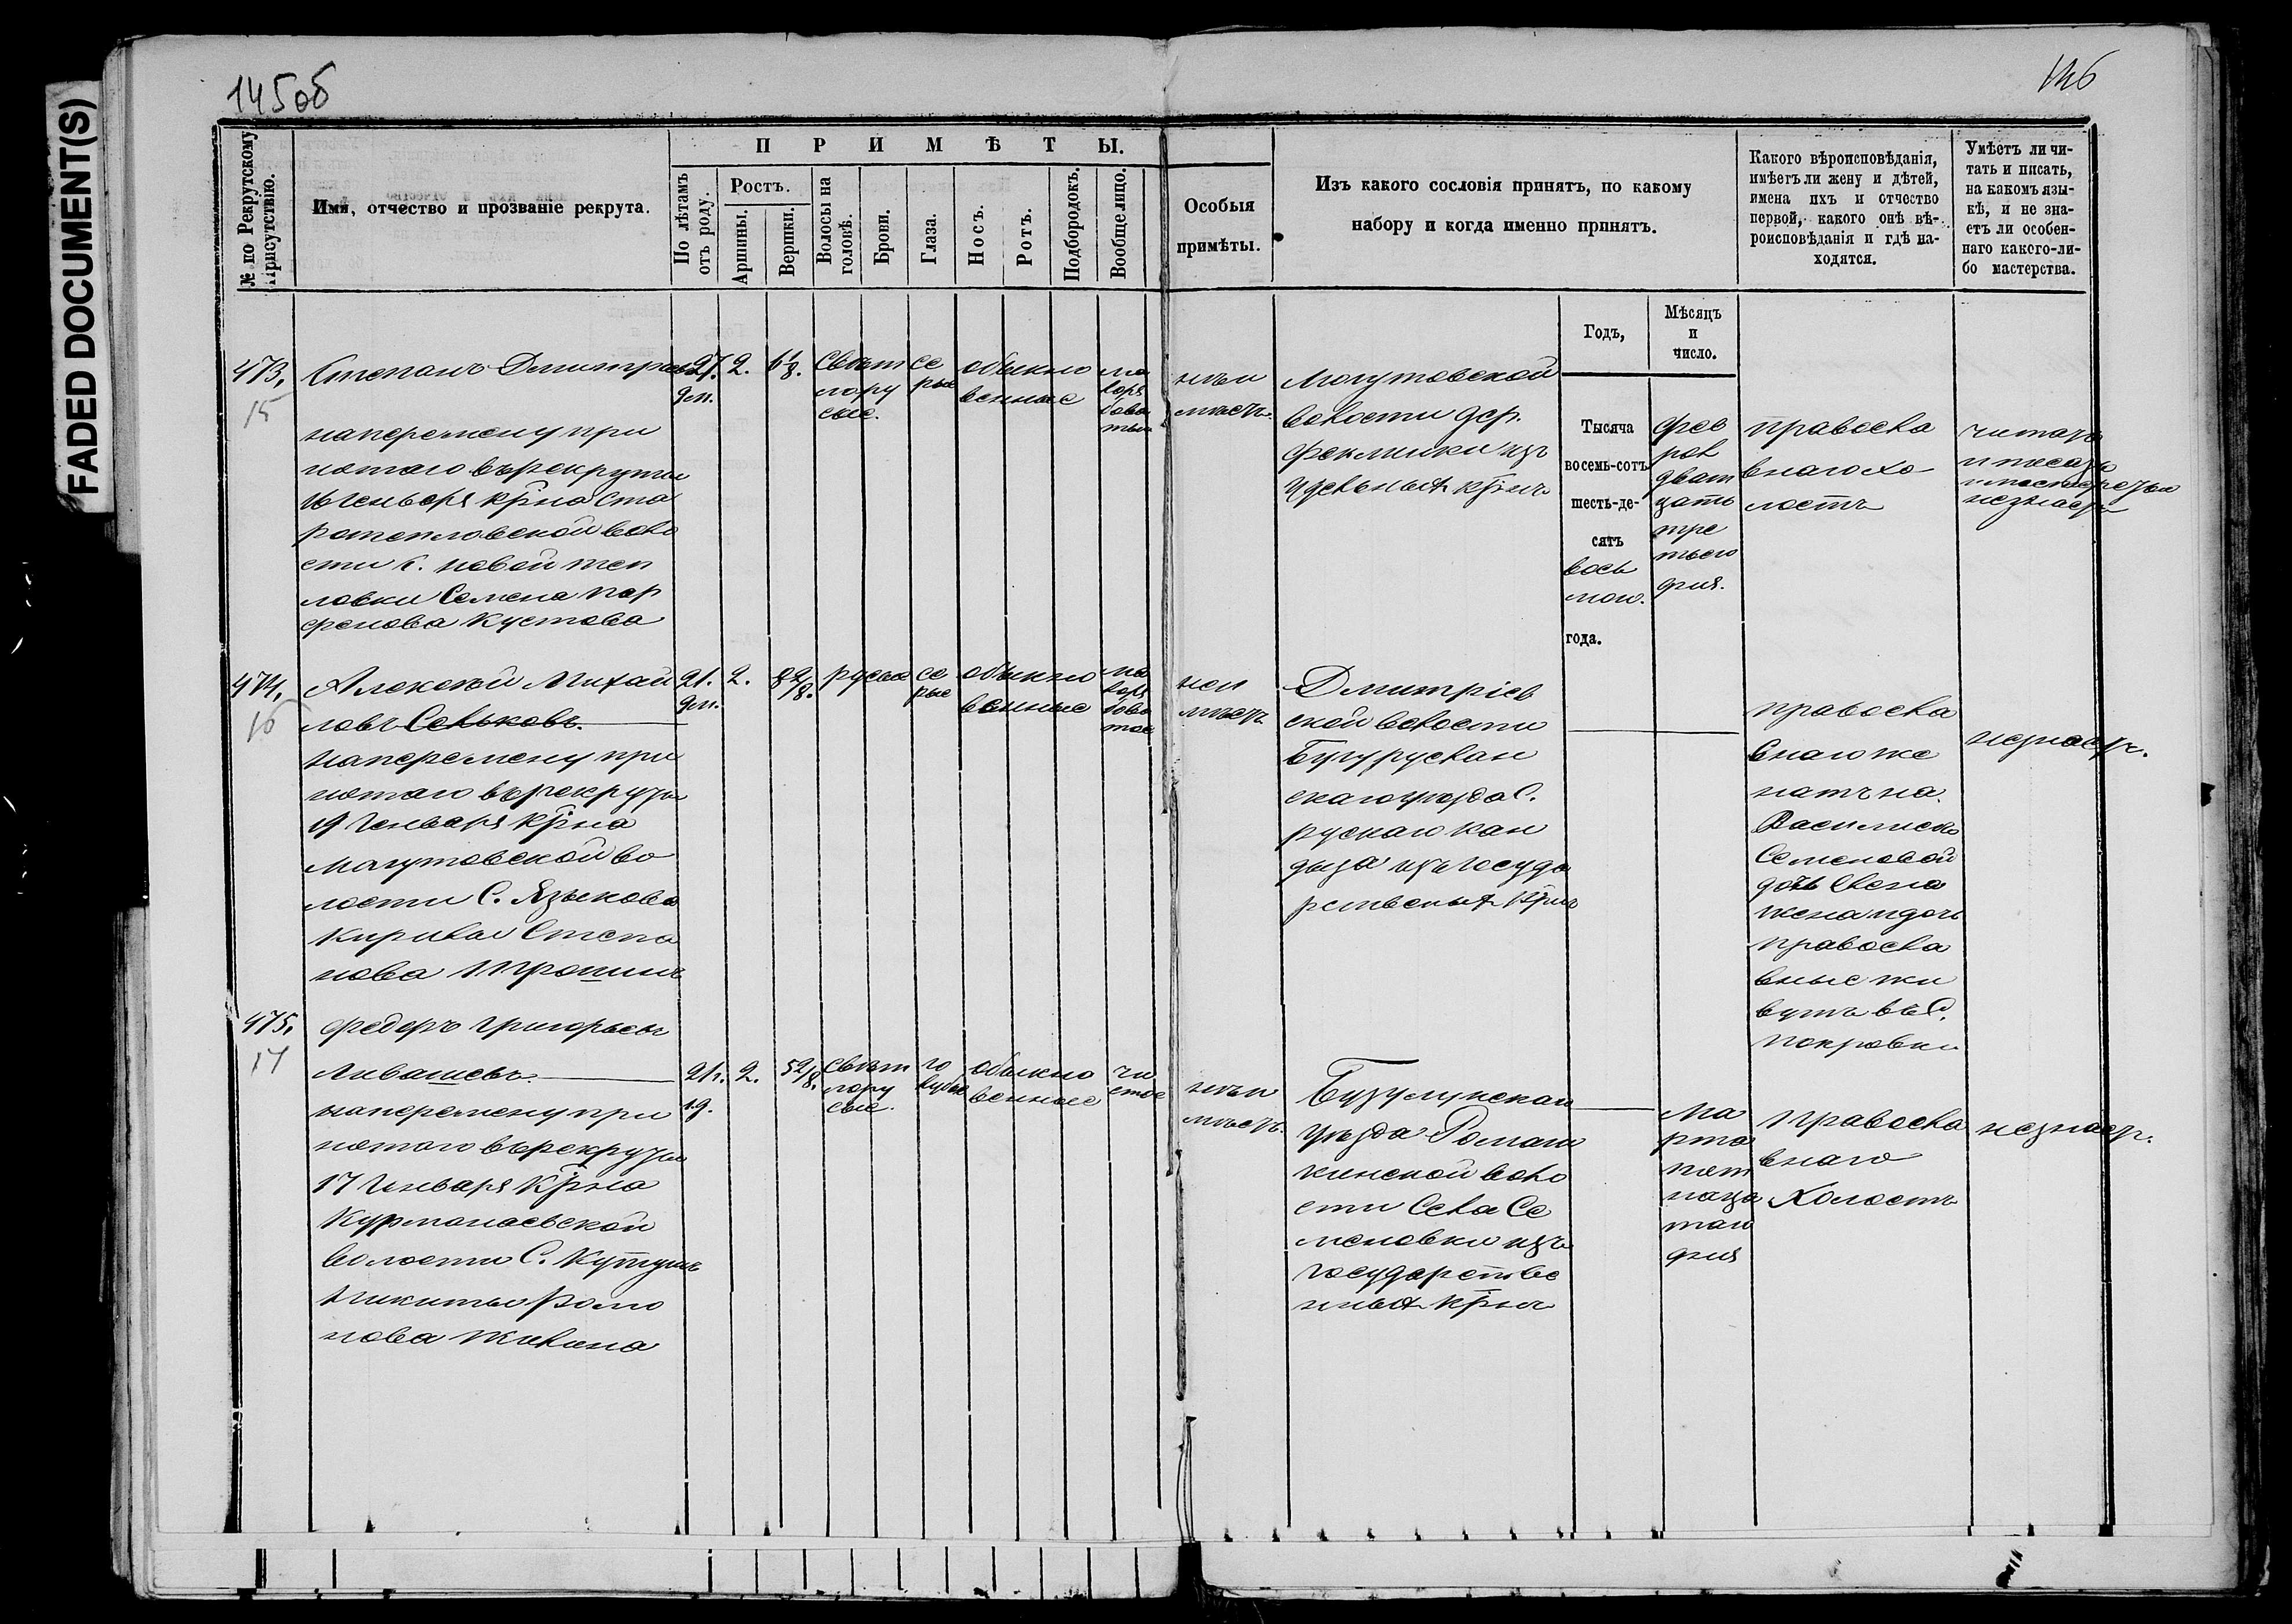 FADED DOCUMENT(S)
145об
146
№ по Рекрутскому Присутствію.
Имя, отчество и прозваніе рекрута.
ПРИМѢТЫ.
По лѣтамъ отъ роду.
Ростъ.
Аршины.
Вершки.
Волосы на головѣ.
Брови.
Глаза.
Носъ.
Ротъ.
Подбородокъ.
Вообще лицо.
Особыя
примѣты.
Изъ какого сословія принятъ, по какому
набору и когда именно принятъ.
Какого вѣроисповѣданія,
имѣетъ ли жену и дѣтей,
имена ихъ и отчество
первой, какого онѣ вѣ-
роисповѣданія и гдѣ на-
ходятся.
Умѣетъ ли чи-
тать и писать,
на какомъ язы-
кѣ, и не зна-
етъ ли особен-
наго какого-ли-
бо мастерства.
Годъ,
Мѣсяцъ
и
число.
473.
15
Степанъ Дмитриевъ
напеременупри
нятаго върекруты
Генваря крна Ста
ротепловской воло
сти с. новой теп
ловки Семена пар
фенова Кустова
27.
2.
6 1/8.
Свѣтт
лору
сые.
се
рые
обыкно
венные
ще
коря
бова
тыи
нѣи
мѣетъ.
Могутовской
волости дер.
Феклинки изъ
удѣльныхъ крнъ
Тысяча
восемь-сотъ
шесть-де-
сятъ
вось
мого.
года.
фев
рал
дват
цать
тре
тьего
дня.
правосла
внаго хо
лостъ
читать
и писать
и мастерствы
незнаетъ
474.
16
Алексѣй Михаи
ловъ Сеньковъ.
напеременупри
нятаго върекруты
19 Генваря крна
могутовской во
лости С. Языкова
Кирилы Степа
нова
21.
2.
8 2/8.
русые
се
рые
обыкно
венные
неи
мѣетъ
Дмитріев
ской волости
Бугуруслан
скаго уѣзда С.
рускаго кан
дыза изъ госуда
рственыхъ крнъ
правосла
внаго же
натъ на
Василисѣ
Семеновой
дочь Елена
жена и дочь
правосла
вные жи
вутъ въ С.
покровки
незнаетъ.
475.
17
Федоръ Григорьевъ
Ливашевъ.
напеременупри
нятаго върекруты
17 Генваря крна
Курманаевской
волости С. Кутуш
Никиты Рома
нова Жилина
21г.
2.
5 2/8.
Свѣтт
лору
сые.
го
лубые
обыкно
венные
чи
стое
нѣи
мѣетъ.
Бузулукскаго
уѣзда Ромаш
кинской воло
сти Села Се
меновки изъ
государстве
нныхъ крнъ
Ма
рта
пят
наца
таго
дня
Правосла
внаго
Холостъ
незнаетъ.